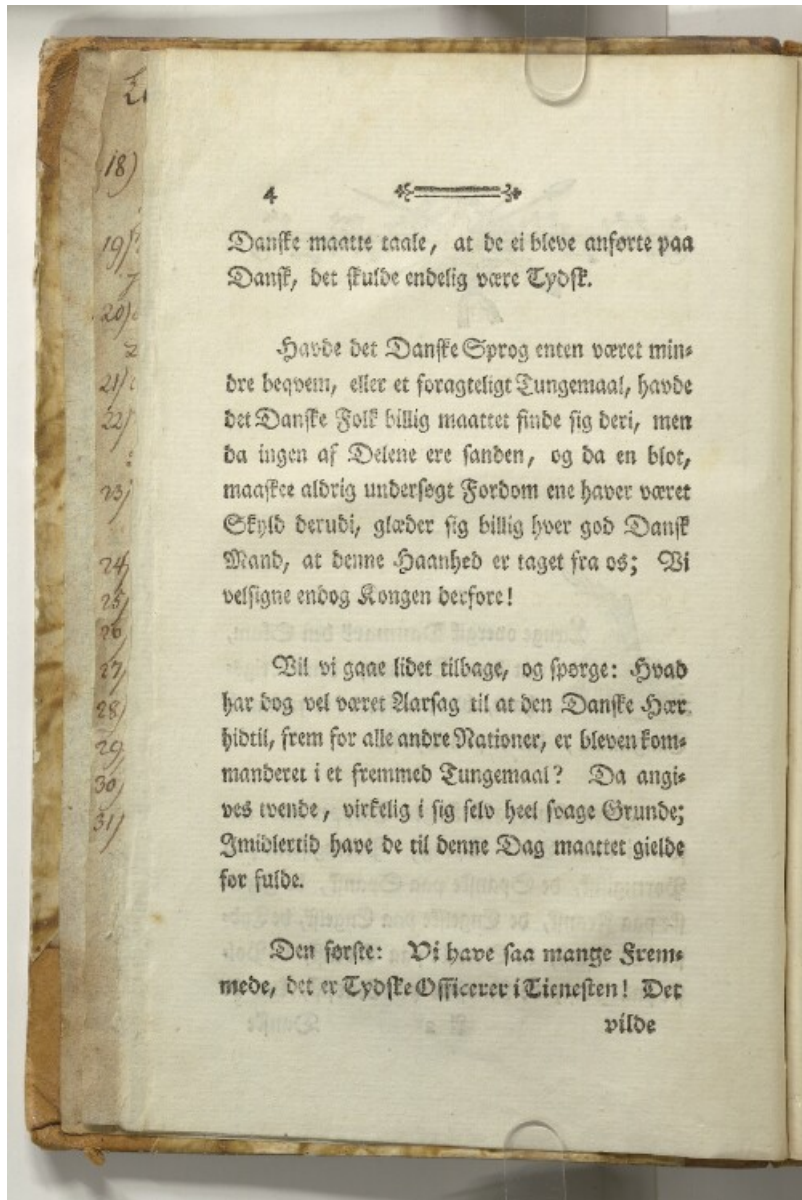 4
Danske maatte taale, at de ei bleve anførte paa
Dansk, det skulde endelig være Tydsk.
Havde det Danske Sprog enten været min⸗
dre beqvem, eller et foragteligt Tungemaal, havde
det Danske Folk billig maattet finde sig deri, men
da ingen af Delene ere sanden, og da en blot,
maaskee aldrig undersøgt Fordom ene haver været
Skyld derudi, glæder sig billig hver god Dansk
Mand, at denne Haanhed er taget fra os; Vi
velsigne endog Kongen derfore!
Vil vi gaae lidet tilbage, og spørge: Hvad
har dog vel været Aarsag til at den Danske Hær
hidtil, frem for alle andre Nationer, er bleven kom⸗
manderet i et fremmed Tungemaal? Da angi⸗
ves tvende, virkelig i sig selv heel svage Grunde;
Imidlertid have de til denne Dag maattet gielde
for fulde.
Den første: Vi have saa mange Frem⸗
mede, det er Tydske Officerer i Tienesten! Det
vilde
18)
19)
20)
21)
22)
23)
24)
25)
26)
27)
28)
29)
30)
31)